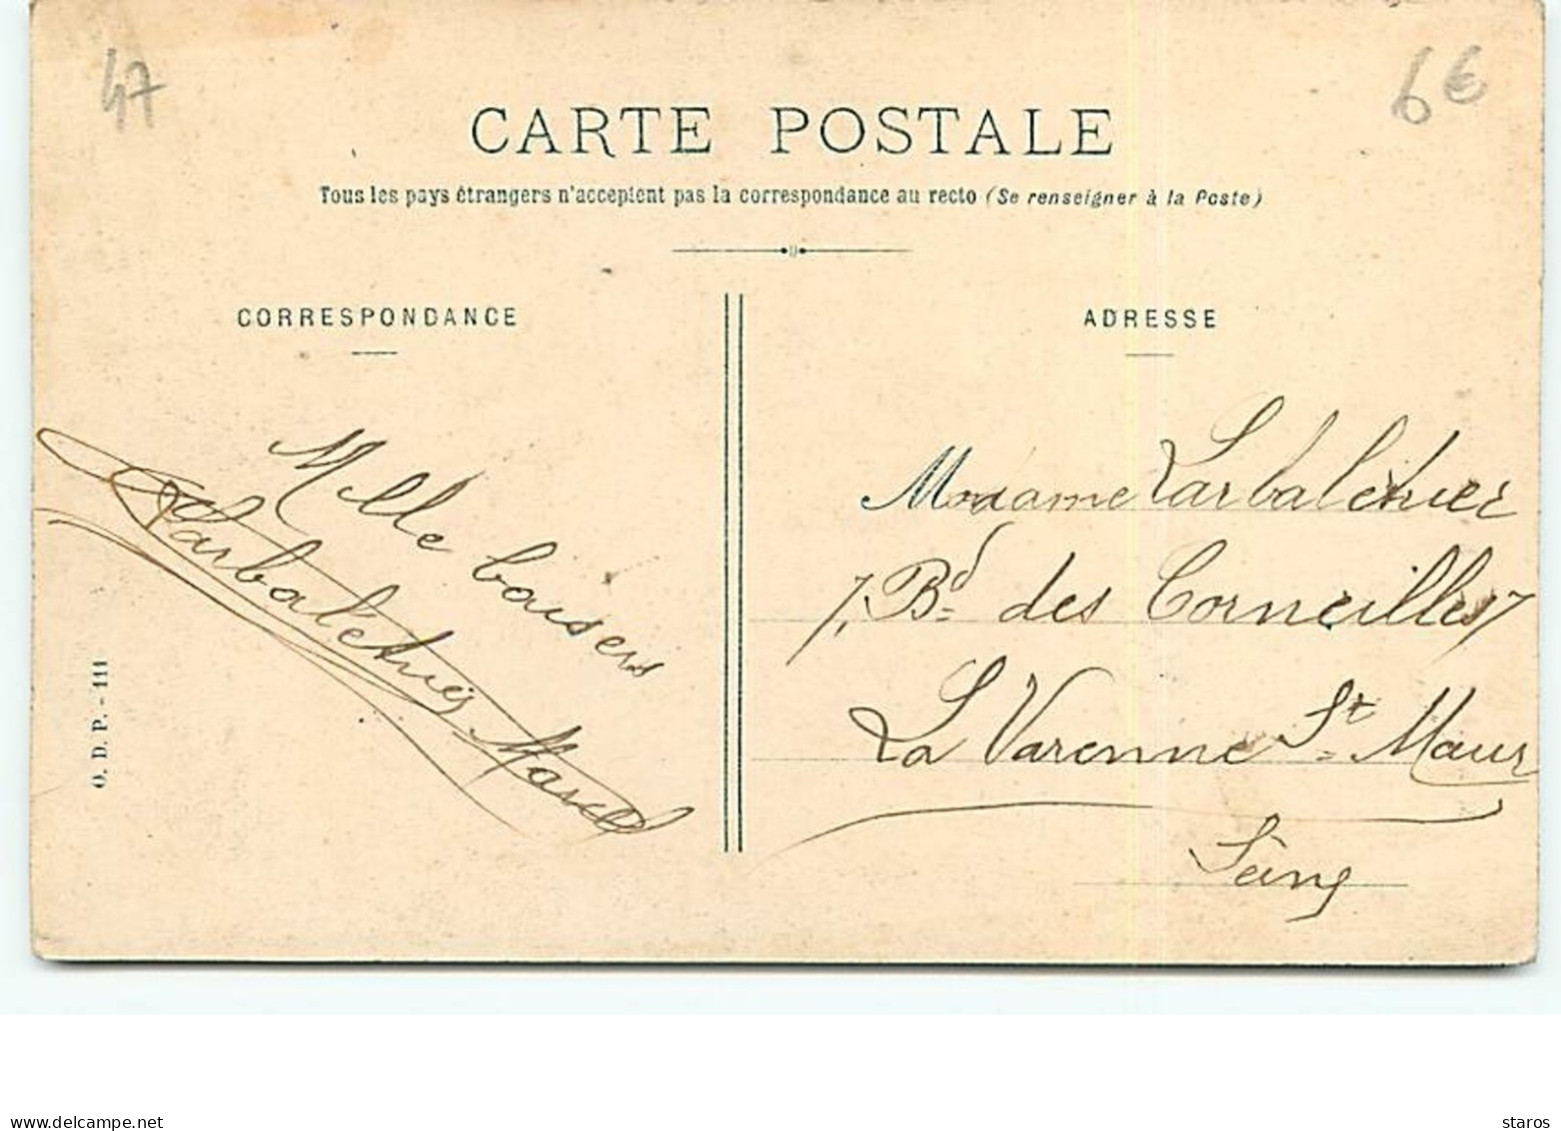 47
6€
CARTE POSTALE
Tous les pays étrangers n'acceptent pas la correspondance au recto (Se renseigner à la Poste)
CORRESPONDANCE
Mille baisers
Larbalétrier Marcel
O. D. P. - 111
ADRESSE
Madame Larbalétrier
7, Bd des Corneilles 7
La Varenne St Maur
Seine
www.delcampe.net
staros